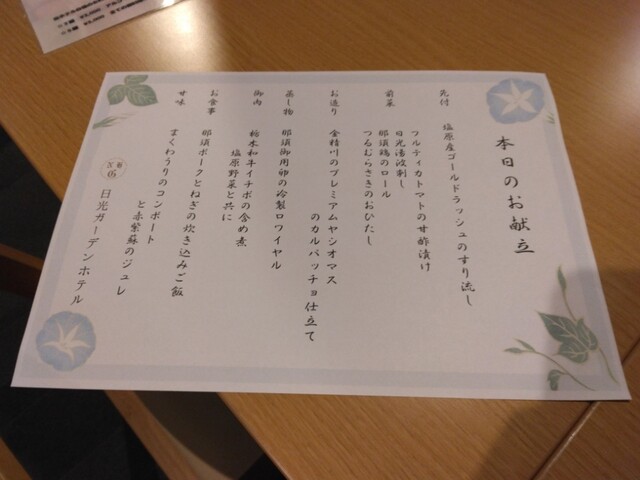 本日のお献立
先付
塩原産ゴールドラッシュのすり流し
前菜
フルティカトマトの甘酢漬け
日光湯波刺し
那須鶏のロール
つるむらさきのおひたし
お造り
金精川のプレミアムヤシオマス
のカルパッチョ仕立て
蒸し物
那須御用卵の冷製ロワイヤル
御肉
栃木和牛イチボの含め煮
塩原野菜と共に
お食事
那須ポークとねぎの炊き込みご飯
甘味
まくわうりのコンポート
と赤紫蘇のジュレ
日光ガーデンホテル